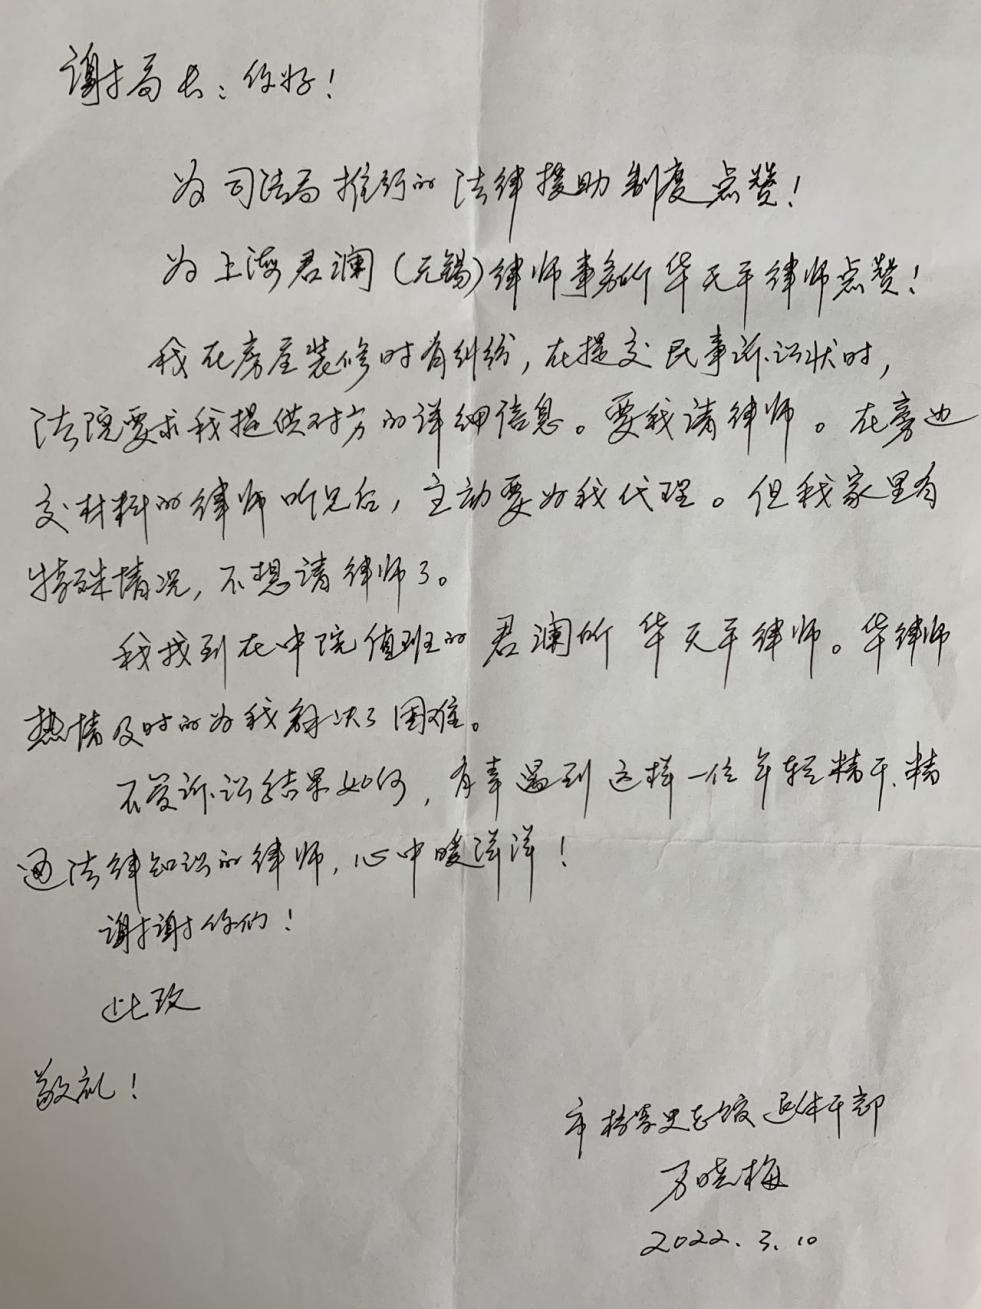 谢局长：你好！
为司法局推行的法律援助制度点赞！
为上海君澜（无锡）律师事务所华天平律师点赞！
我在房屋装修时有纠纷，在提交民事诉讼状时，
法院要求我提供对方的详细信息。要我请律师。在旁边
交材料的律师听见后，主动要为我代理。但我家里有
特殊情况，不想请律师了。
我找到在中院值班的君澜所华天平律师。华律师
热情及时的为我解决了困难。
不管诉讼结果如何，有幸遇到这样一位年轻精干、精
通法律知识的律师，心中暖洋洋！
谢谢你们！
此致
敬礼！
市档案史志馆退休干部
万晓梅
2022.3.10